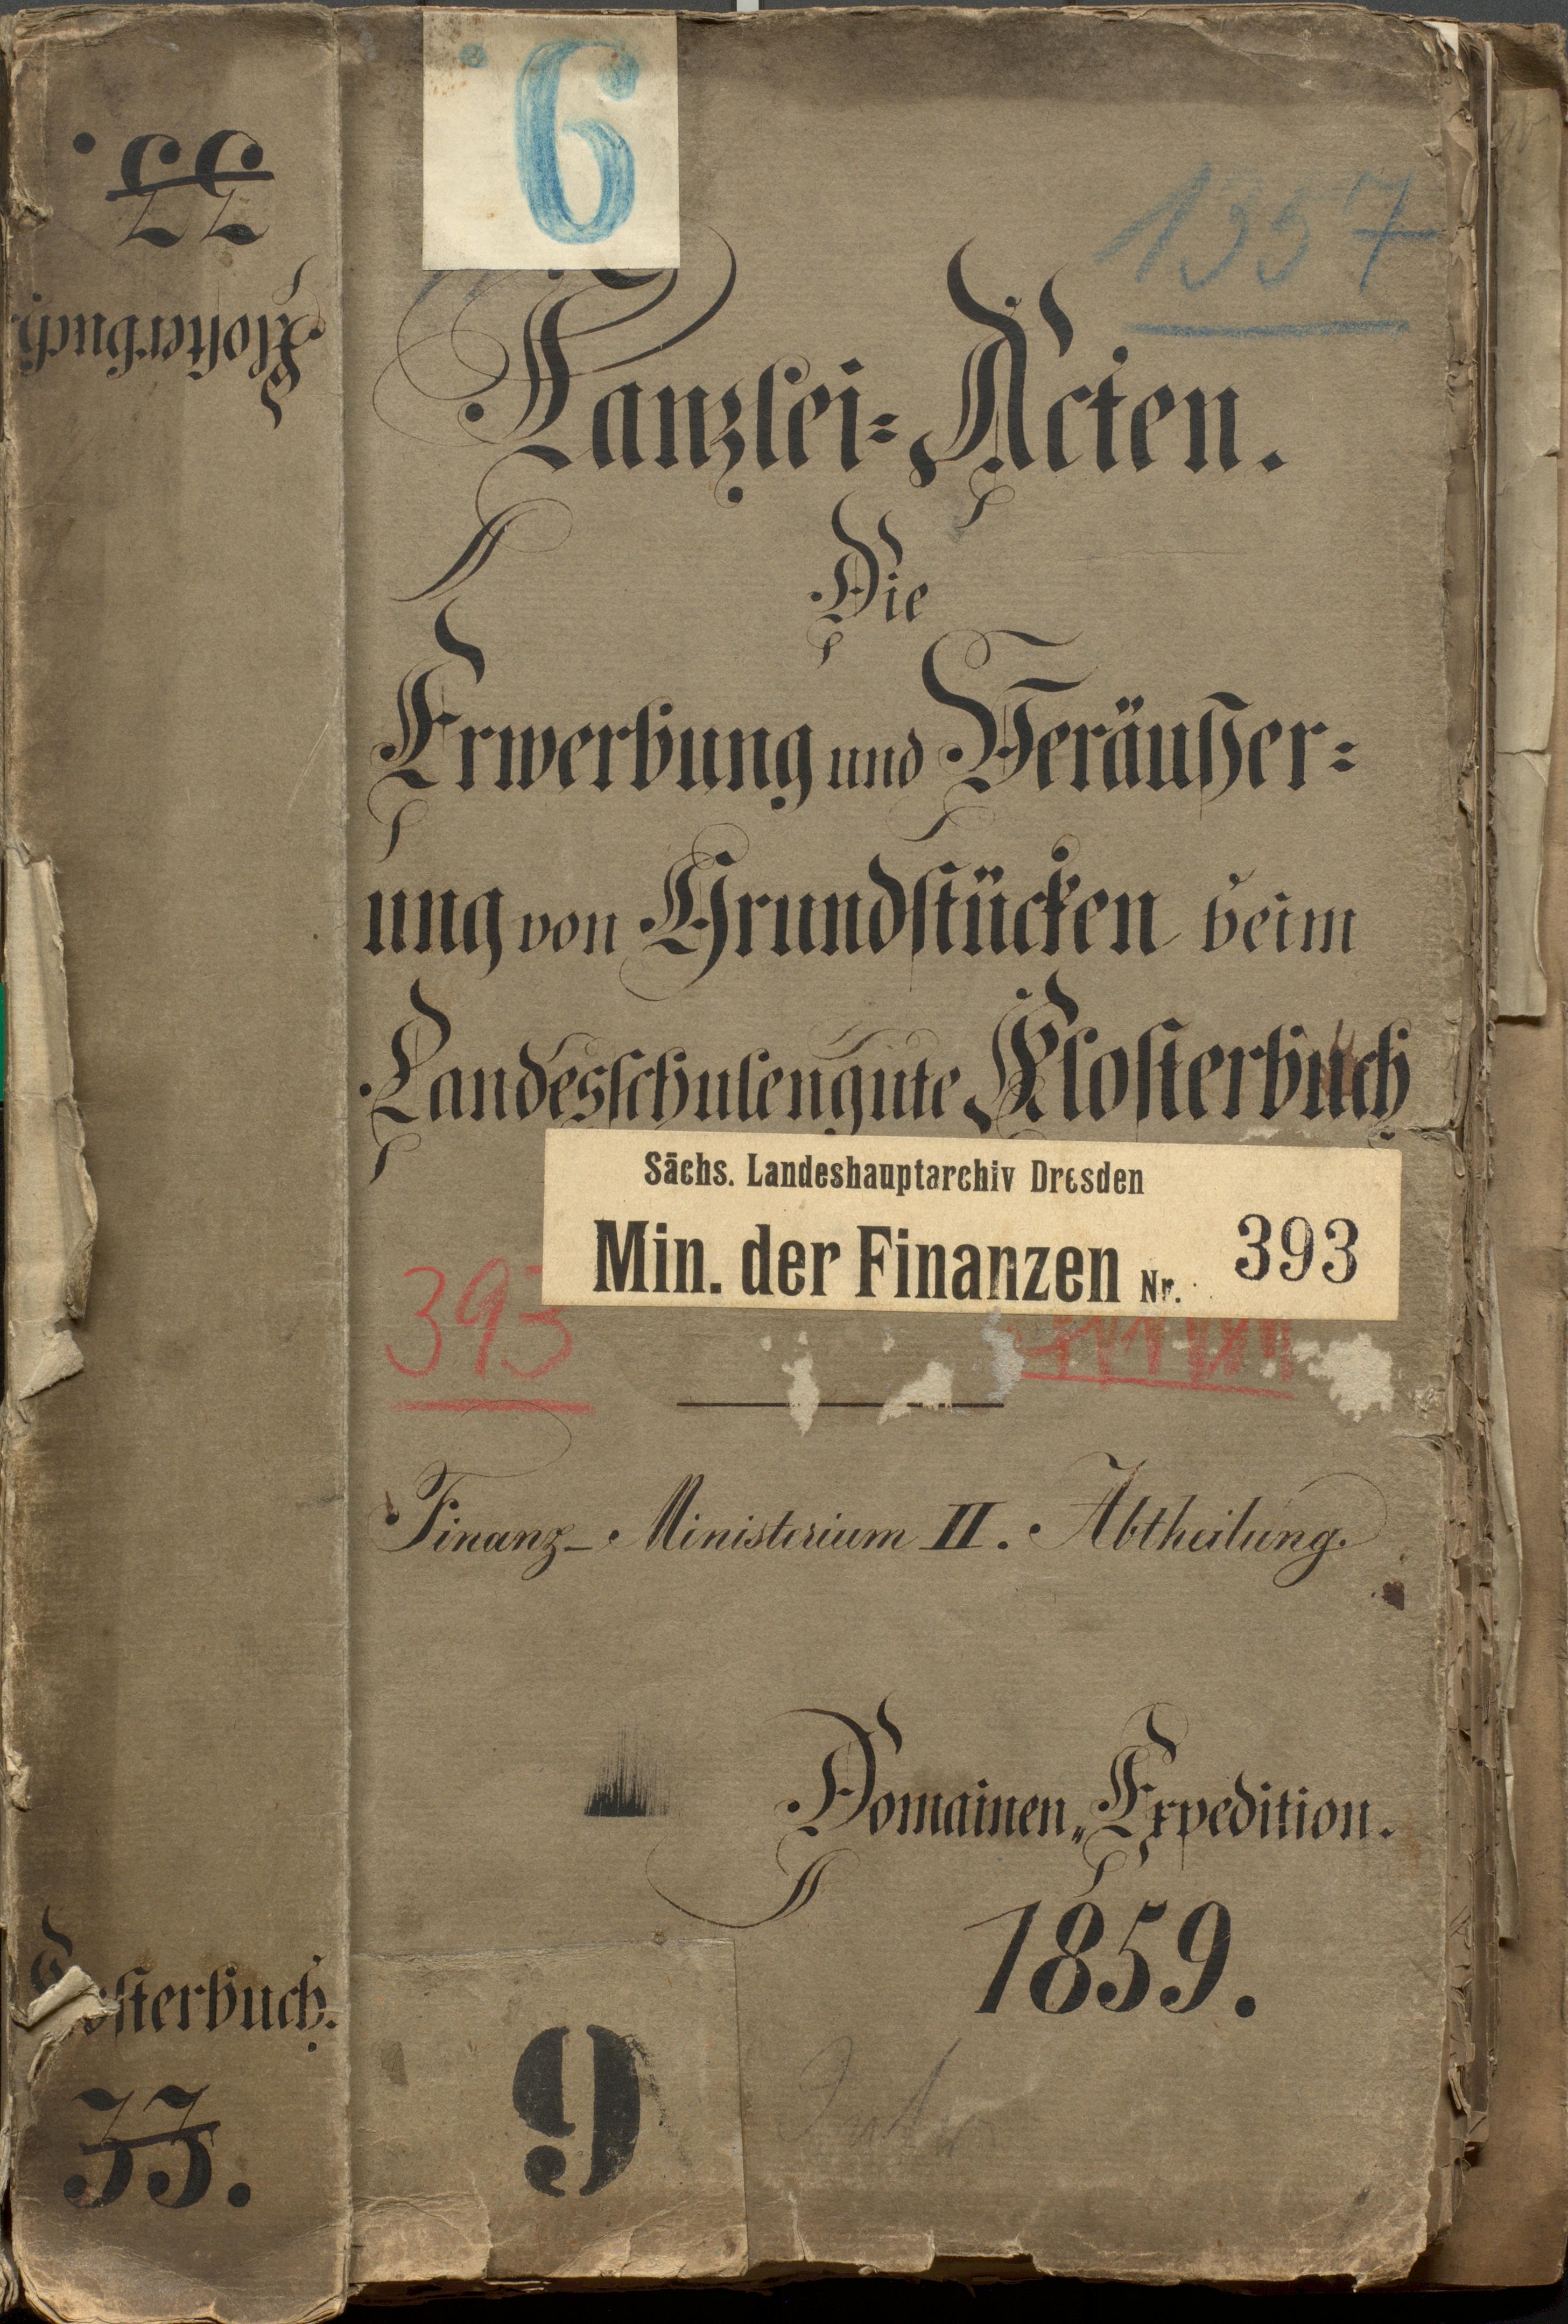 6
1357
Kanzlei=Acten.
Die
Erwerbung und Veräußer=
ung von Grundstücken beim
Landesschulengute Klosterbuch
Sächs. Landeshauptarchiv Dresden
Min. der Finanzen Nr. 393
393
Finanz-Ministerium II. Abtheilung.
Domainen„Expedition.
1859.
9
Klosterbuch.
33.
Klosterbuch.
33.